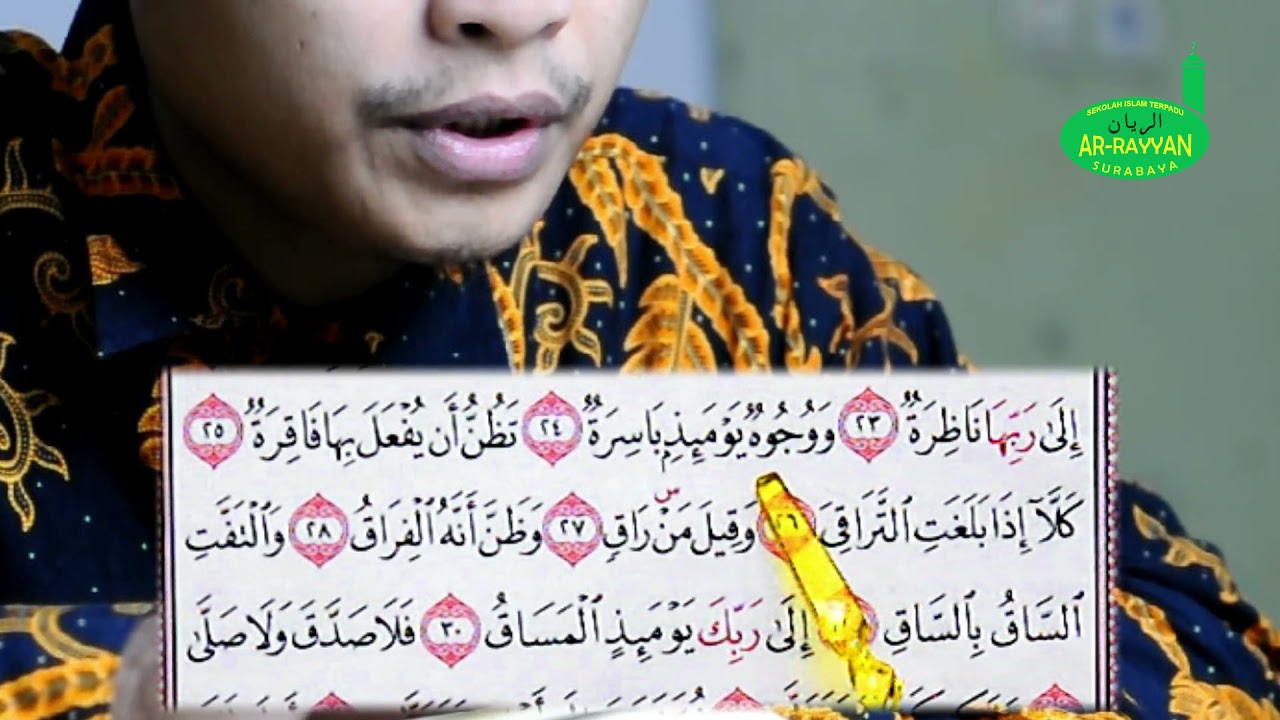 SEKOLAH ISLAM TERPADU
الريان
AR-RAYYAN
SURABAYA
إِلَىٰ رَبِّهَا نَاظِرَةٌ ٢٣ وَوُجُوهٌ يَوْمَئِذٍۭ بَاسِرَةٌ ٢٤ تَظُنُّ أَن يُفْعَلَ بِهَا فَاقِرَةٌ ٢٥
كَلَّآ إِذَا بَلَغَتِ ٱلتَّرَاقِىَ ٢٦ وَقِيلَ مَنْۜ رَاقٍ ٢٧ وَظَنَّ أَنَّهُ ٱلْفِرَاقُ ٢٨ وَٱلْتَفَّتِ
ٱلسَّاقُ بِٱلسَّاقِ إِلَىٰ رَبِّكَ يَوْمَئِذٍ ٱلْمَسَاقُ ٣٠ فَلَا صَدَّقَ وَلَا صَلَّىٰ